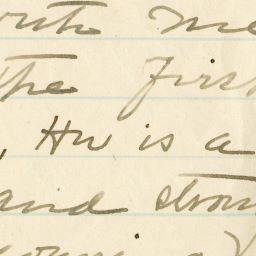 with me
The first
, Hw is a
and stron